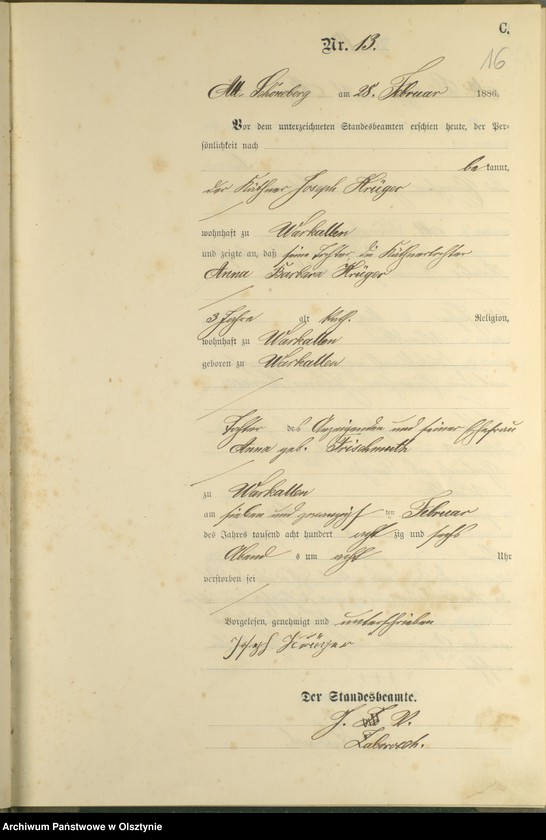 C.
Nr. 13.
16
Alt Schöneberg am 28. Februar 1886.
Vor dem unterzeichneten Standesbeamten erschien heute, der Per-
sönlichkeit nach
be kannt,
der Käthner Joseph Krüger
wohnhaft zu Warkallen
und zeigte an, daß seine Tochter, die Käthnertochter
Anna Barbara Krüger
3 Jahre alt kath. Religion,
wohnhaft zu Warkallen
geboren zu Warkallen
Tochter des Anzeigenden und seiner Ehefrau
Anna geb. Frischmuth
zu Warkallen
am sieben und zwanzigsten Februar
des Jahres tausend acht hundert acht zig und sechs
Abend s um acht Uhr
verstorben sei
Vorgelesen, genehmigt und unterschrieben
Joseph Krüger
Der Standesbeamte.
J. V.
Archiwum Państwowe w Olsztynie